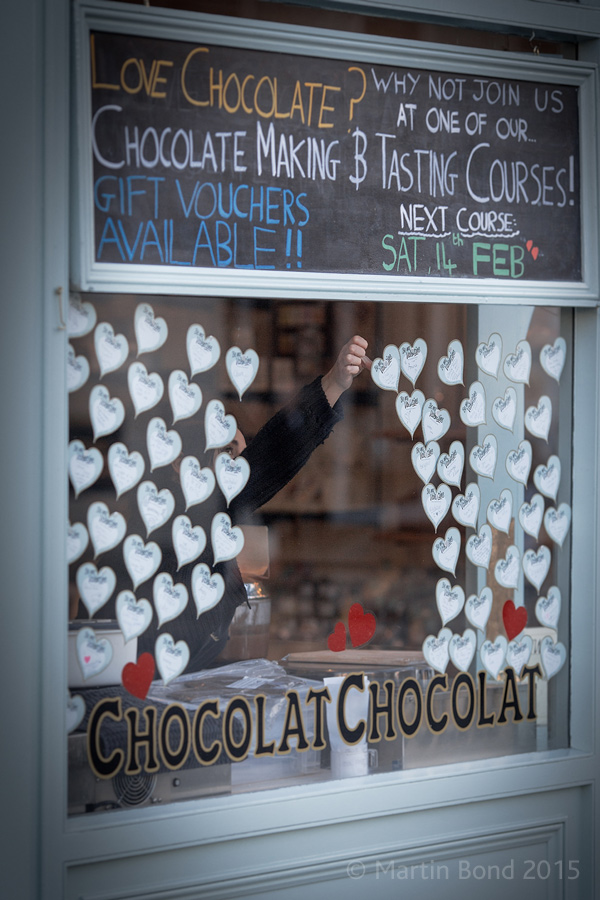 LOVE CHOCOLATE?
CHOCOLATE MAKING & TASTING COURSES!
GIFT VOUCHERS
AVAILABLE!!
WHY NOT JOIN US
AT ONE OF OUR...
NEXT COURSE:
SAT 14th FEB
CHOCOLAT CHOCOLAT
© Martin Bond 2015